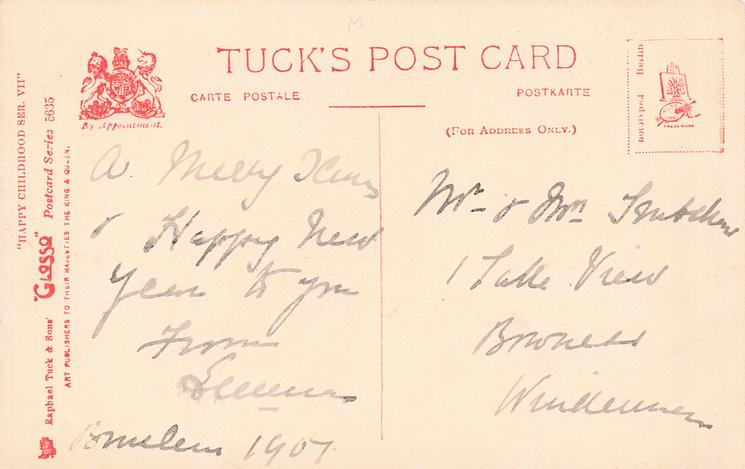 TUCK'S POST CARD
CARTE POSTALE
POSTKARTE
(FOR ADDRESS ONLY.)
By Appointment.
Phototyped Berlin
TRADE MARK
"HAPPY CHILDHOOD SER. VII"
Raphael Tuck & Sons' "GLOSSO" Postcard Series 5635
ART PUBLISHERS TO THEIR MAJESTIES THE KING & QUEEN.
A Merry Xmas
& Happy New
Year to you
From
Emma
1907
Mr & Mrs
1 Lake View
Bowness
Windermere